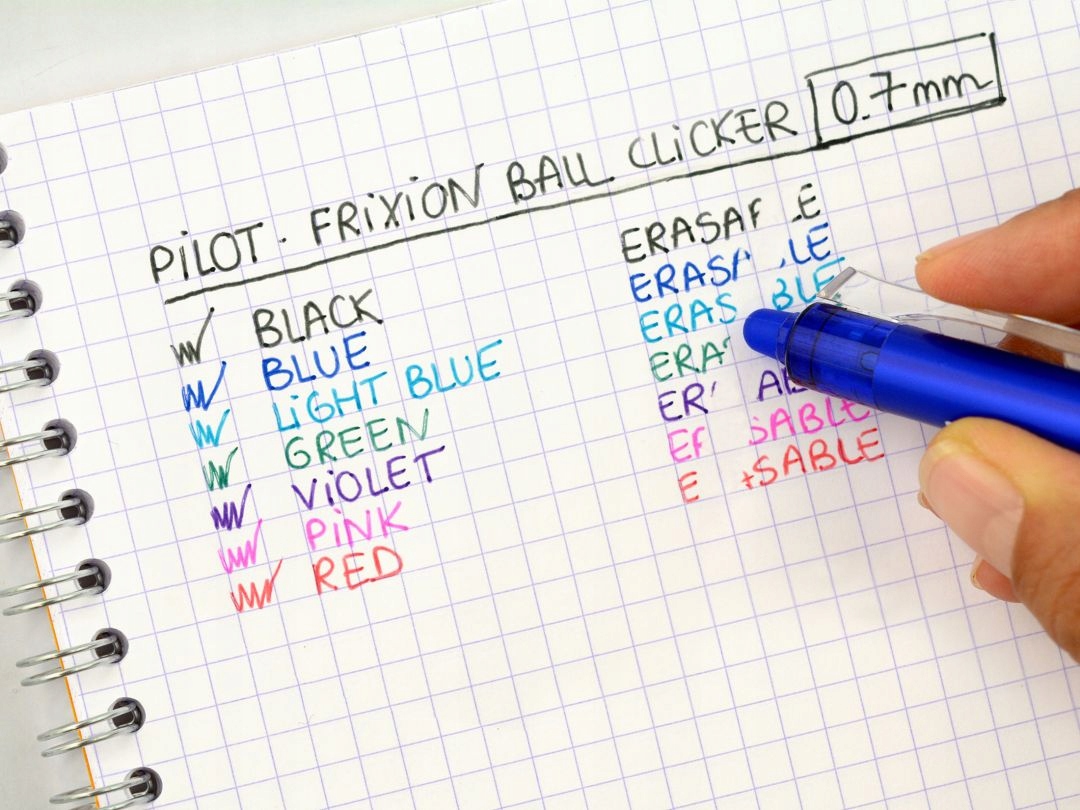 PiLOT. FRiXiON BALL CLiCKER 0.7mm
BLACK
BLUE
LiGHT BLUE
GREEN
ViOLET
PiNK
RED
ERASA E
ERASA LE
ERAS BLE
ERA
ER A
E SABLE
E SABLE